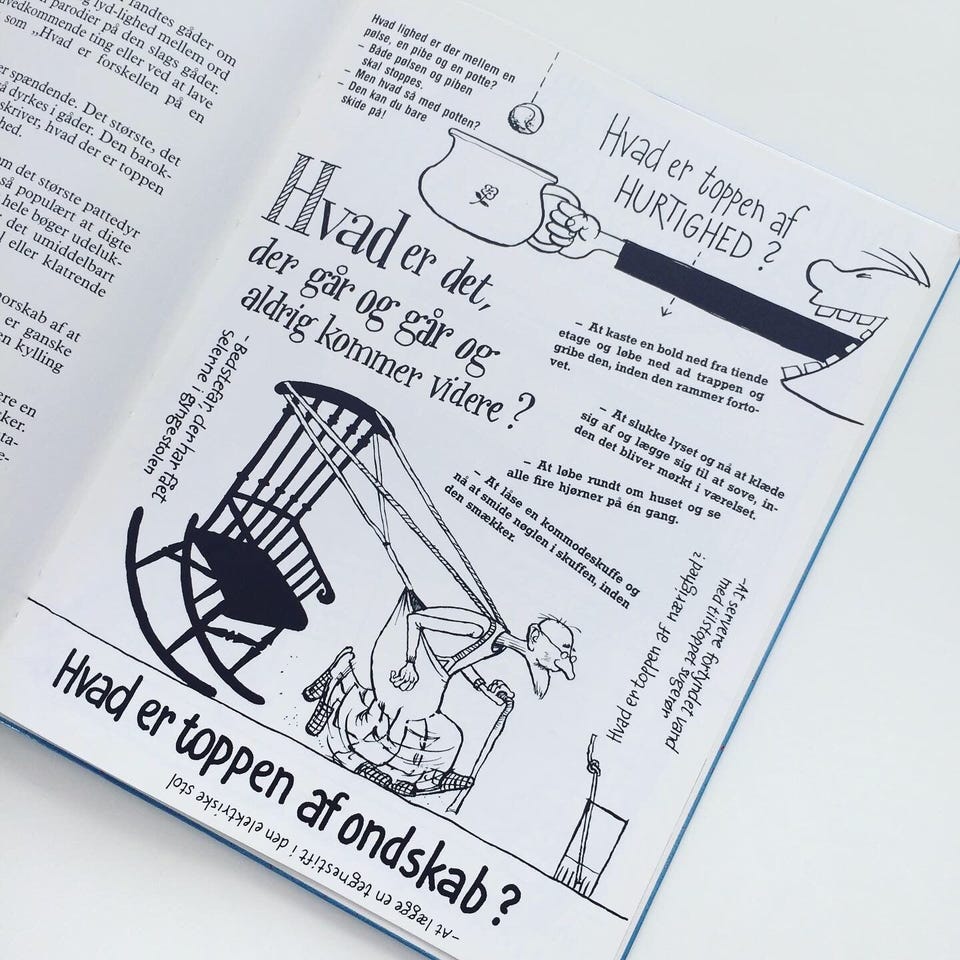 fandtes gåder om
og lyd-lighed mellem ord
parodier på den slags gåder.
vedkommende ting eller ved at lave
som „Hvad er forskellen på en
er spændende. Det største, det
så dyrkes i gåder. Den barok-
skriver, hvad der er toppen
hed.
om det største pattedyr
så populært at digte
hele bøger udeluk-
det umiddelbart
eller klatrende
norskab af at
er ganske
en kylling
ere en
Hvad lighed er der mellem en
pølse, en pibe og en potte?
– Både pølsen og piben
skal stoppes.
– Men hvad så med potten?
– Den kan du bare
skide på!
Hvad er toppen af
HURTIGHED?
– At kaste en bold ned fra tiende
etage og løbe ned ad trappen og
gribe den, inden den rammer forto-
vet.
– At slukke lyset og nå at klæde
sig af og lægge sig til at sove, in-
den det bliver mørkt i værelset.
– At løbe rundt om huset og se
alle fire hjørner på én gang.
– At låse en kommodeskuffe og
nå at smide nøglen i skuffen, inden
den smækker.
Hvad er det,
der går og går og
aldrig kommer videre?
– Bedstefar, der har fået
selerne i gyngestolen
Hvad er toppen af nærighed?
– At servere fortyndet vand
med tilstoppet sugerør
Hvad er toppen af ondskab?
– At lægge en tegnestift i den elektriske stol